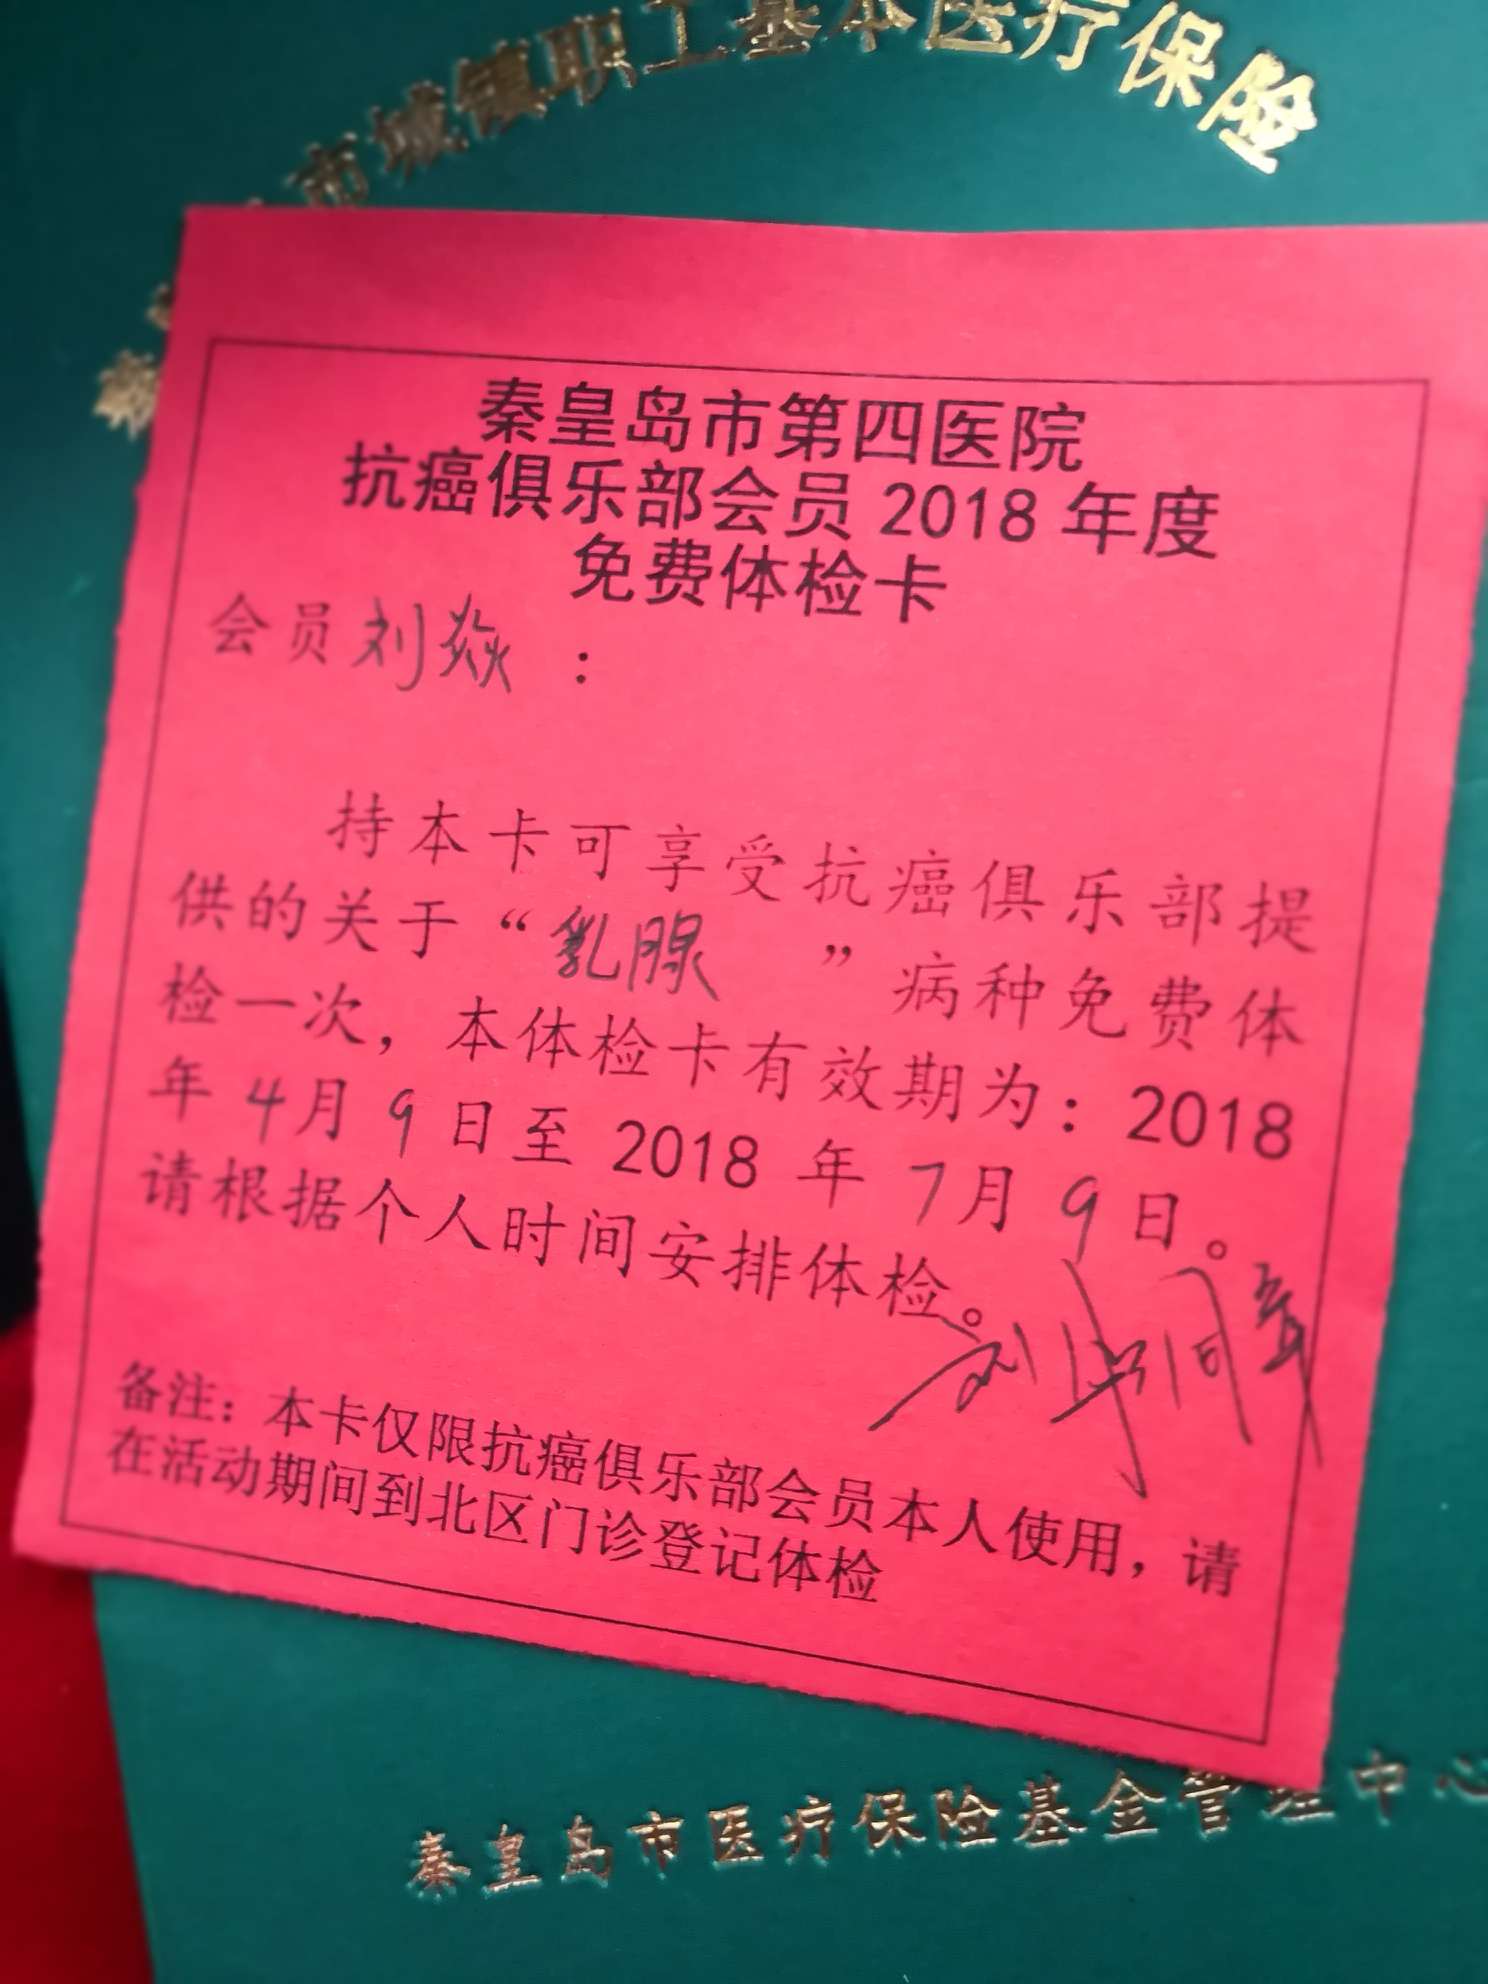 市城镇职工基本医疗保险
秦皇岛市第四医院
抗癌俱乐部会员 2018 年度
免费体检卡
会员刘焱：
持本卡可享受抗癌俱乐部提
供的关于“乳腺 ”病种免费体
检一次，本体检卡有效期为：2018
年 4月 9 日至 2018 年 7月 9 日。
请根据个人时间安排体检。
备注：本卡仅限抗癌俱乐部会员本人使用，请
在活动期间到北区门诊登记体检
秦皇岛市医疗保险基金管理中心